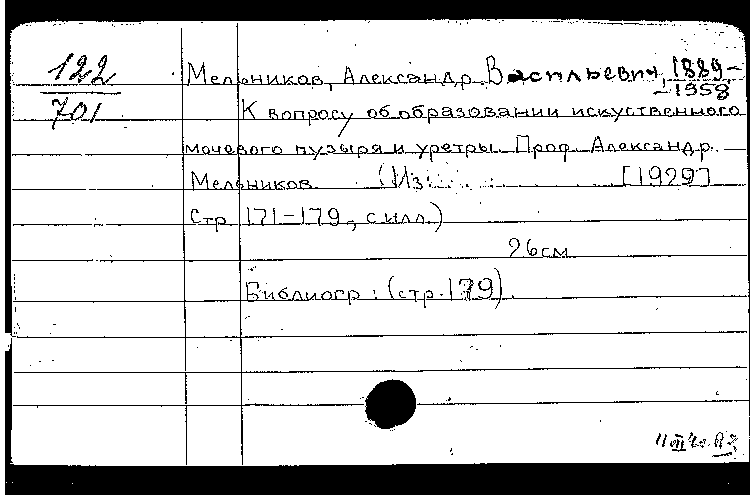 122
701
Мельников, Александр Васильевич, 1889-
-1958
К вопросу об образовании искуственного
мочевого пузыря и уретры. Проф. Александр
Мельников. (Из [1929]
Стр. 171-179, с илл.)
26см.
Библиогр: (стр. 179).